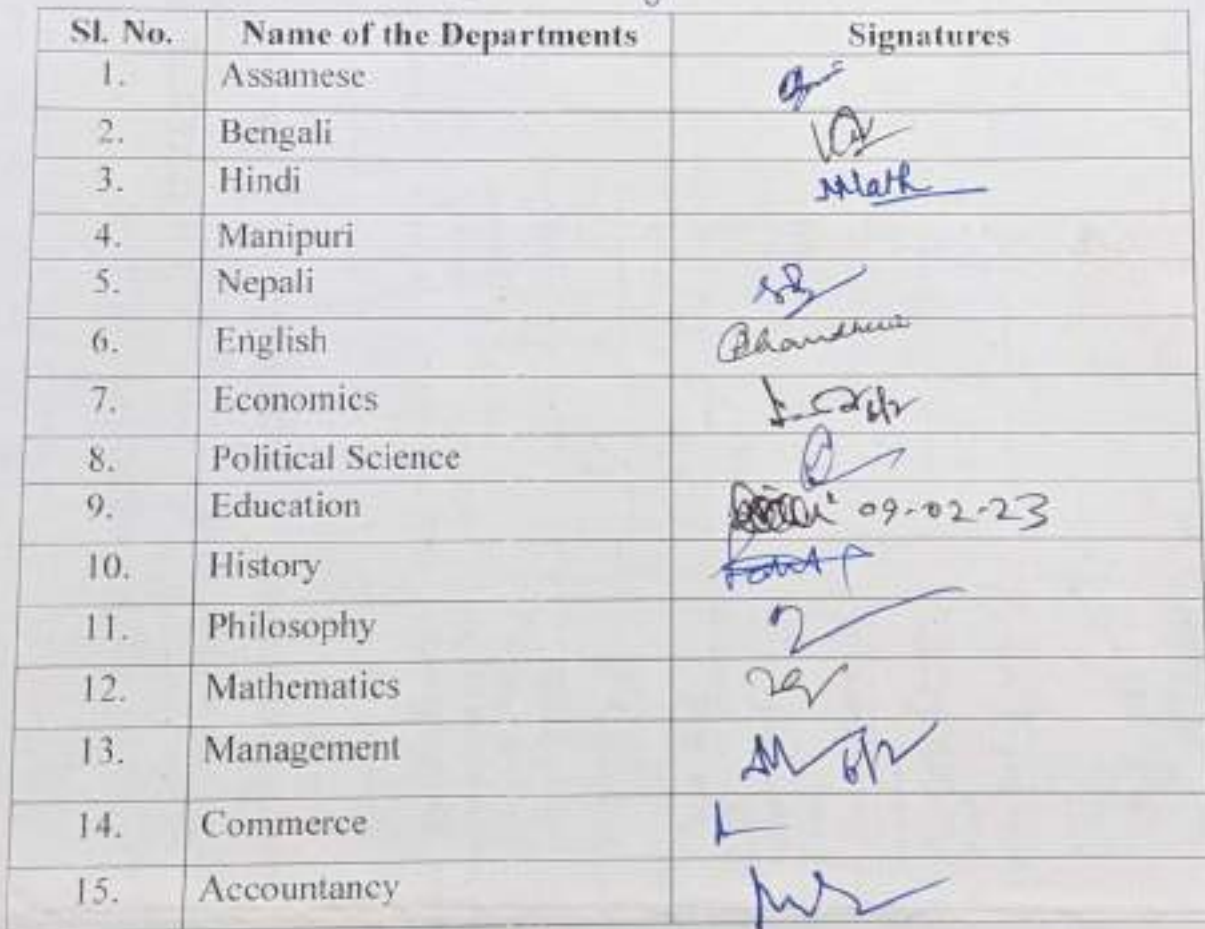 Sl. No. Name of the Departments Signatures
1. Assamese
2. Bengali
3. Hindi NNath
4. Manipuri
5. Nepali
6. English
7. Economics 6/2
8. Political Science
9. Education 09-02-23
10. History
11. Philosophy
12. Mathematics
13. Management 6/2
14. Commerce
15. Accountancy